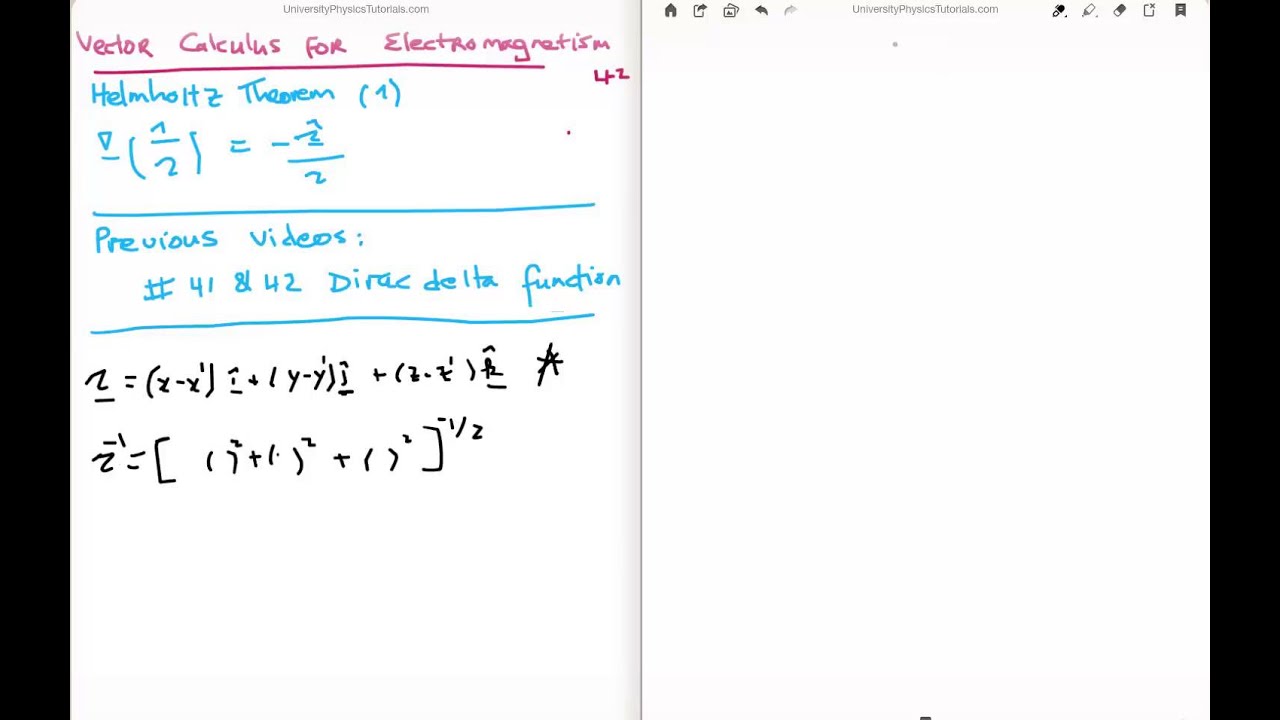 UniversityPhysicsTutorials.com
Vector Calculus for Electromagnetism
42
Helmholtz Theorem (1)
∇(1/r) = -r̂/r
Previous videos:
# 41 & 42 Dirac delta function
r = (x-x')î + (y-y')ĵ + (z-z')k̂ ☆
r⁻¹ = [ ( )² + ( )² + ( )² ]^-1/2
UniversityPhysicsTutorials.com